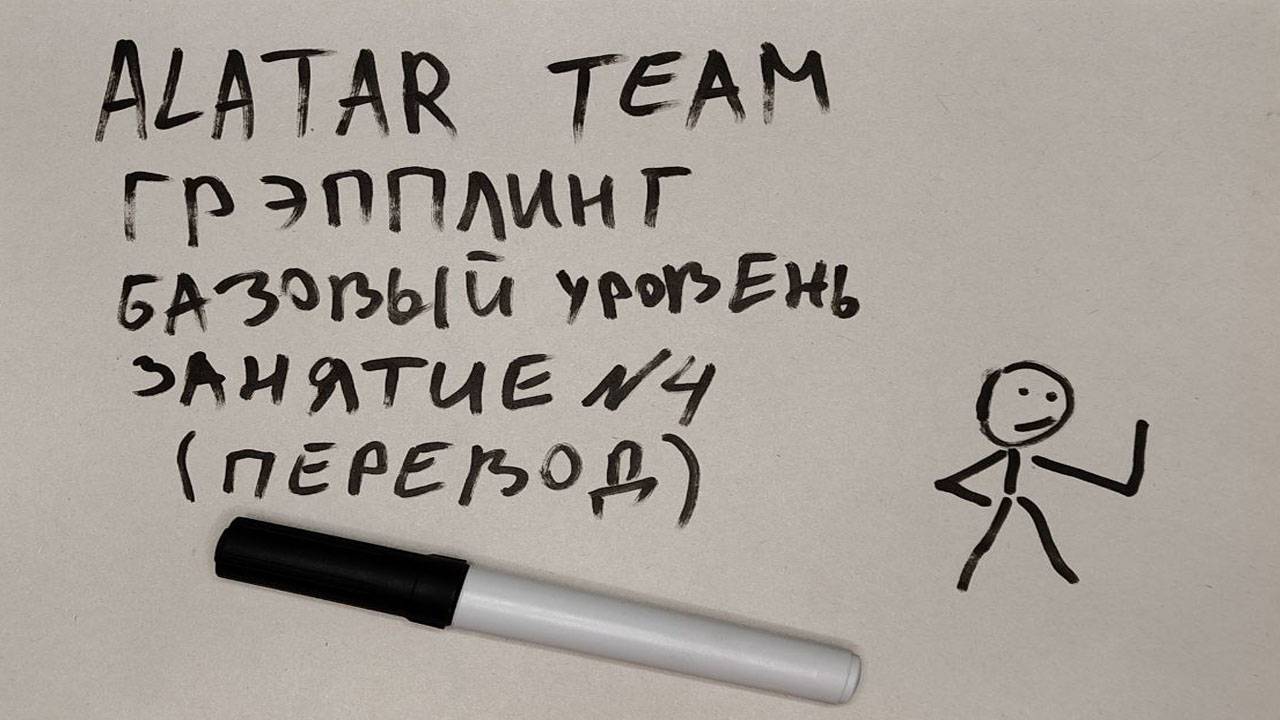 ALATAR TEAM
ГРЭППЛИНГ
БАЗОВЫЙ УРОВЕНЬ
ЗАНЯТИЕ №4
(ПЕРЕВОД)